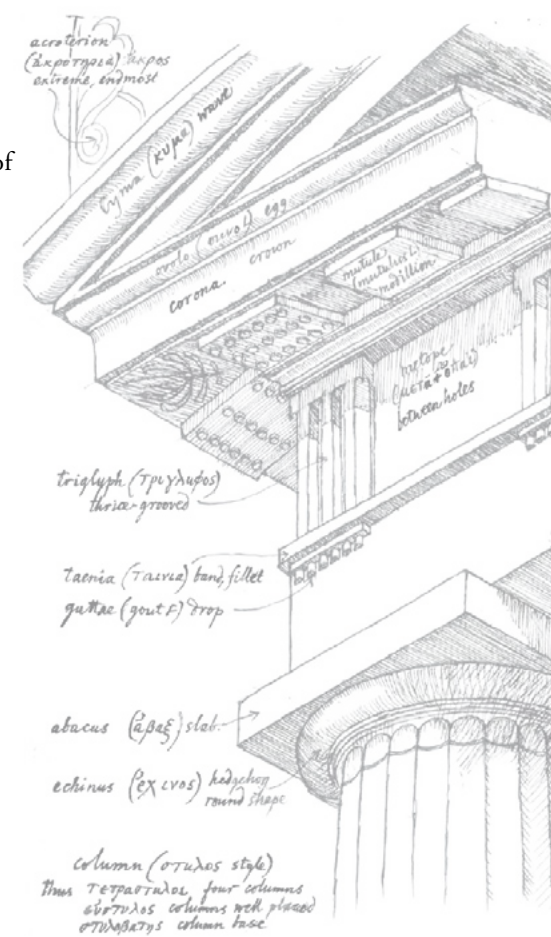 acroterion
(ἀκρότηρια) ἄκρος
extreme, endmost
of
cyma (κυμα) wave
ovolo egg
corona. crown
mutule
(mutulus L.)
modillion
metope
between holes
triglyph (τριγλυφος)
thrice-grooved
taenia (ταινια) band, fillet
guttae (gout F) drop
abacus (ἀβαξ) slab.
echinus (ἐχινος) hedgehog
round shape
column (στυλος style)
thus τετραστυλος four columns
εὐστυλος columns well placed
στυλοβατης column base